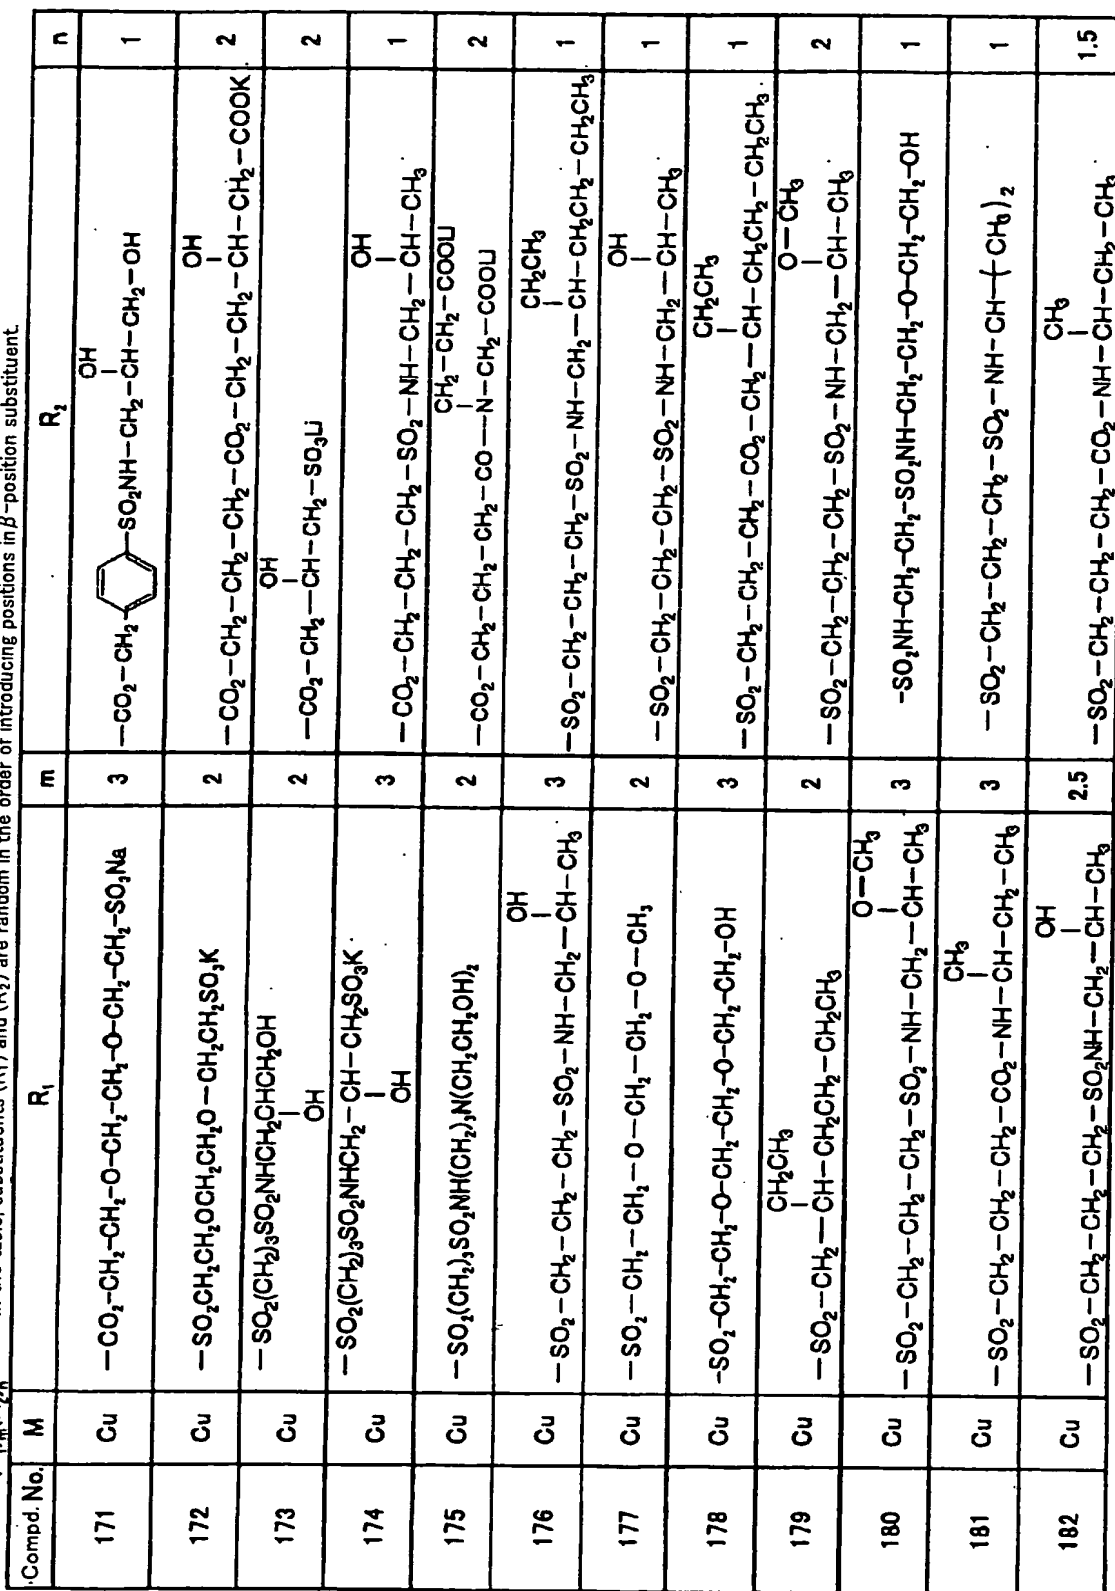 In the table, substituents (R₁) and (R₂) are random in the order of introducing positions in β-position substituent.
Compd. No. M R₁ m R₂ n
171 Cu —CO₂—CH₂—CH₂—O—CH₂—CH₂—O—CH₂—CH₂—SO₃Na 3 —CO₂—CH₂— —SO₂NH—CH₂—CH—CH₂—OH 1
OH
172 Cu —SO₂CH₂CH₂OCH₂CH₂O—CH₂CH₂SO₃K 2 —CO₂—CH₂—CH₂—CH₂—CO₂—CH₂—CH₂—CH—CH₂—COOK 2
OH
173 Cu —SO₂(CH₂)₃SO₂NHCH₂CHCH₂OH 2 —CO₂—CH₂—CH—CH₂—SO₃Li 2
OH OH
174 Cu —SO₂(CH₂)₃SO₂NHCH₂—CH—CH₂SO₃K 3 —CO₂—CH₂—CH₂—CH₂—SO₂—NH—CH₂—CH—CH₃ 1
OH OH
CH₂—CH₂—COOLi
175 Cu —SO₂(CH₂)₃SO₂NH(CH₂)₃N(CH₂CH₂OH)₂ 2 —CO₂—CH₂—CH₂—CH₂—CO—N—CH₂—COOLi 2
OH CH₂CH₃
176 Cu —SO₂—CH₂—CH₂—CH₂—SO₂—NH—CH₂—CH—CH₃ 3 —SO₂—CH₂—CH₂—CH₂—SO₂—NH—CH₂—CH—CH₂CH₂—CH₂CH₃ 1
OH
177 Cu —SO₂—CH₂—CH₂—O—CH₂—CH₂—O—CH₃ 2 —SO₂—CH₂—CH₂—CH₂—SO₂—NH—CH₂—CH—CH₃ 1
CH₂CH₃
178 Cu -SO₂-CH₂-CH₂-O-CH₂-CH₂-O-CH₂-CH₂-OH 3 —SO₂—CH₂—CH₂—CH₂—CO₂—CH₂—CH—CH₂CH₂—CH₂CH₃ 1
CH₂CH₃ O—CH₃
179 Cu —SO₂—CH₂—CH—CH₂CH₂—CH₂CH₃ 2 —SO₂—CH₂—CH₂—CH₂—SO₂—NH—CH₂—CH—CH₃ 2
O—CH₃
180 Cu —SO₂—CH₂—CH₂—CH₂—SO₂—NH—CH₂—CH—CH₃ 3 -SO₂NH-CH₂-CH₂-SO₂NH-CH₂-CH₂-O-CH₂-CH₂-OH 1
CH₃
181 Cu —SO₂—CH₂—CH₂—CH₂—CO₂—NH—CH—CH₂—CH₃ 3 —SO₂—CH₂—CH₂—CH₂—SO₂—NH—CH—(CH₃)₂ 1
OH CH₃
182 Cu —SO₂—CH₂—CH₂—CH₂—SO₂NH—CH₂—CH—CH₃ 2.5 —SO₂—CH₂—CH₂—CH₂—CO₂—NH—CH—CH₂—CH₃ 1.5